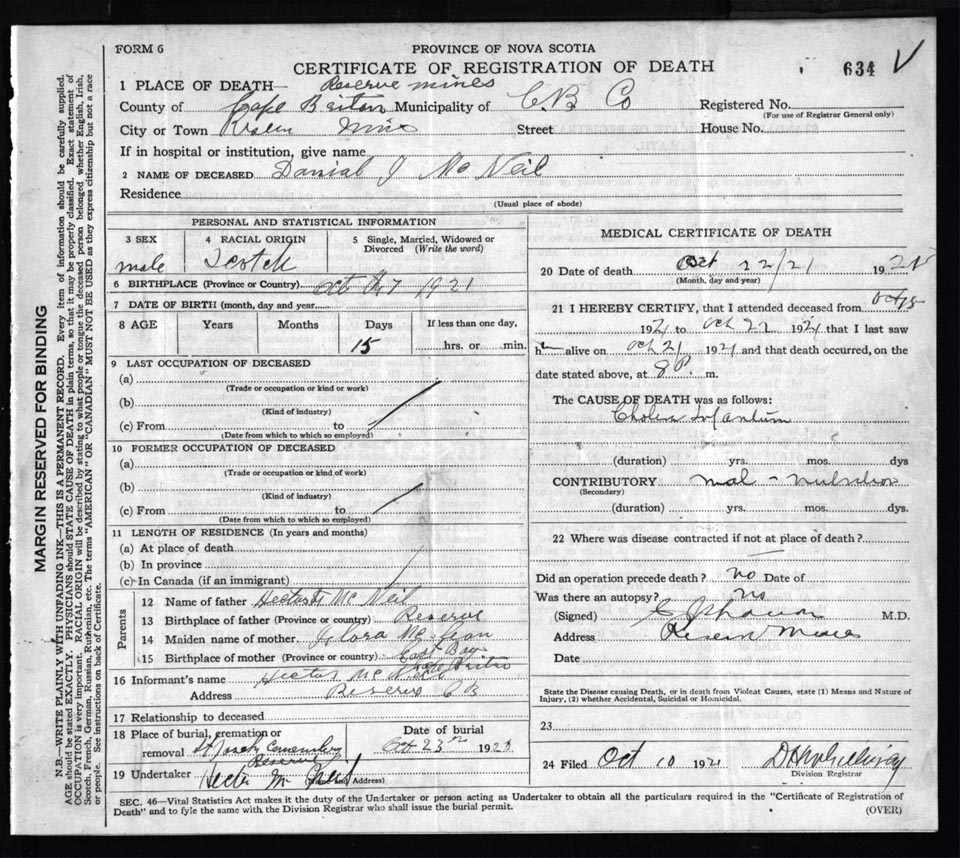 FORM 6
PROVINCE OF NOVA SCOTIA
CERTIFICATE OF REGISTRATION OF DEATH
634
1 PLACE OF DEATH— Reserve mines
County of Cape Breton Municipality of C.B. Co Registered No.
(For use of Registrar General only)
City or Town Mines Street House No.
If in hospital or institution, give name
2 NAME OF DECEASED Danial J McNeil
Residence
(Usual place of abode)
PERSONAL AND STATISTICAL INFORMATION
3 SEX 4 RACIAL ORIGIN 5 Single, Married, Widowed or Divorced (Write the word)
male Scotch
6 BIRTHPLACE (Province or Country) Oct 7 1921
7 DATE OF BIRTH (month, day and year)
8 AGE Years Months Days If less than one day,
15 hrs. or min.
9 LAST OCCUPATION OF DECEASED
(a)
(Trade or occupation or kind or work)
(b)
(Kind of industry)
(c) From to
(Date from which to which so employed)
10 FORMER OCCUPATION OF DECEASED
(a)
(Trade or occupation or kind of work)
(b)
(Kind of industry)
(c) From to
(Date from which to which so employed)
11 LENGTH OF RESIDENCE (In years and months)
(a) At place of death
(b) In province
(c) In Canada (if an immigrant)
Parents
12 Name of father McNeil
13 Birthplace of father (Province or country) Reserve
14 Maiden name of mother Flora McLean
15 Birthplace of mother (Province or country) East Bay
Cape Breton
16 Informant's name Hector McNeil
Address Reserve C B
17 Relationship to deceased
18 Place of burial, cremation or Date of burial
removal Cemetery Oct 23 192
Reserve
19 Undertaker Hector McNeil
(Name and Address)
MEDICAL CERTIFICATE OF DEATH
20 Date of death Oct 22/21 1921
(Month, day and year)
21 I HEREBY CERTIFY, that I attended deceased from Oct
1921 to Oct 22 1921 that I last saw
h alive on Oct 21 1921 and that death occurred, on the
date stated above, at 8 P. m.
The CAUSE OF DEATH was as follows:
Cholera Infantum
(duration) yrs. mos. dys
CONTRIBUTORY mal-nutrition
(Secondary)
(duration) yrs. mos. dys.
22 Where was disease contracted if not at place of death?
Did an operation precede death? no Date of
Was there an autopsy? No
(Signed) M.D.
Address Reserve Mines
Date
State the Disease causing Death, or in death from Violent Causes, state (1) Means and Nature of
Injury, (2) whether Accidental, Suicidal or Homicidal.
23
24 Filed Oct 10 1921
Division Registrar
SEC. 46—Vital Statistics Act makes it the duty of the Undertaker or person acting as Undertaker to obtain all the particulars required in the "Certificate of Registration of
Death" and to fyle the same with the Division Registrar who shall issue the burial permit.
(OVER)
MARGIN RESERVED FOR BINDING
N.B.—WRITE PLAINLY WITH UNFADING INK—THIS IS A PERMANENT RECORD. Every item of information should be carefully supplied.
AGE should be stated EXACTLY. PHYSICIANS should STATE CAUSE OF DEATH in plain terms, so that it may be properly classified. Exact statement of
OCCUPATION is very important. RACIAL ORIGIN will be described by stating to what people or tongue the deceased person belonged whether English, Irish,
Scotch, French, German, Russian, Ruthenian, etc. The terms "AMERICAN" OR "CANADIAN" MUST NOT BE USED as they express citizenship but not a race
or people. See instructions on back of Certificate.